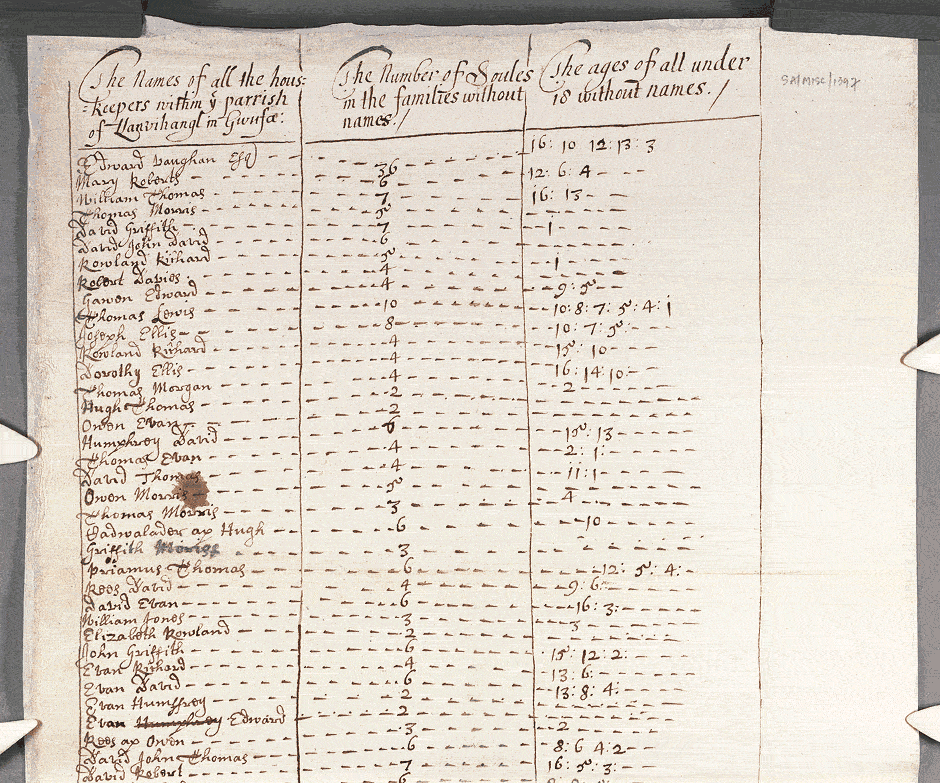 SA/MISC/1397
The Names of all the hous= The Number of Soules The ages of all under
=keepers within ỹ parrish in the families without 18 without names./
of Llanvihangl in Gwnfæ: names./
Edward Vaughan Esq 36 16: 10 12: 13: 3
Mary Roberts 6 12: 6: 4
William Thomas 7 16: 13
Thomas Morris 5
David Griffith 7 1
David John David 6
Rowland Richard 5 1
Robert Davies 4
Gawen Edward 4 9: 5
Thomas Lewis 10 10: 8: 7: 5: 4: 1
Joseph Ellis 8 10: 7: 5:
Rowland Richard 4 15: 10
Dorothy Ellis 4 16: 14: 10
Thomas Morgan 4 2
Hugh Thomas 2
Owen Evan 2
Humphrey David 6 15: 13
Thomas Evan 4 2: 1:
David Thomas 4 11: 1
Owen Morris 5 4
Thomas Morris 3
Cadwalader ap Hugh 6 10
Griffith Morris 3
Priamus Thomas 6 12: 5: 4:
Rees David 4 9: 6:
David Evan 6 16: 3:
William Jones 3 3
Elizabeth Rowland 2
John Griffith 6 15: 12: 2:
Evan Richard 4 13: 6:
Evan David 6 13: 8: 4:
Evan Humffrey 2
Evan Humphrey Edward 2
Rees ap Owen 3 2
David John Thomas 6 8: 6 4: 2
David Robert 7 16: 5: 3: